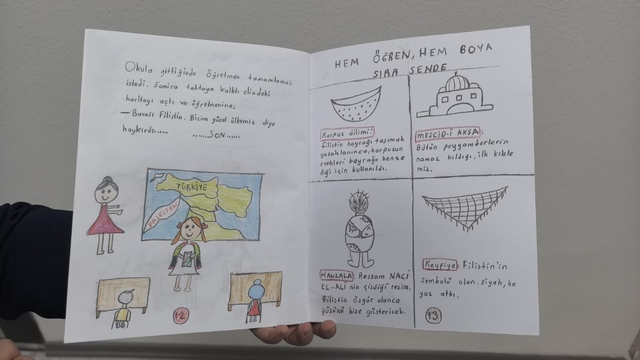 Okula gittiğinde öğretmen tamamlamasını
istedi. Samira tahtaya kalktı elindeki
haritayı açtı ve öğretmenine;
— Burası Filistin. Bizim güzel ülkemiz diye
haykırdı.....
......SON.....
TÜRKİYE
FİLİSTİN
12
HEM ÖĞREN, HEM BOYA
SIRA SENDE
Karpuz dilimi:
Filistin bayrağı taşımak
yasaklanınca, karpuzun
renkleri bayrağa benze
diği için kullanıldı.
MESCİD-İ AKSA:
Bütün peygamberlerin
namaz kıldığı, ilk kıble
miz.
HANZALA: Ressam NACİ
EL-ALİ nin çizdiği resim.
Filistin özgür olunca
yüzünü bize gösterecek.
Keyfiye: Filistin'in
sembolü olan, siyah, be
yaz atkı.
13